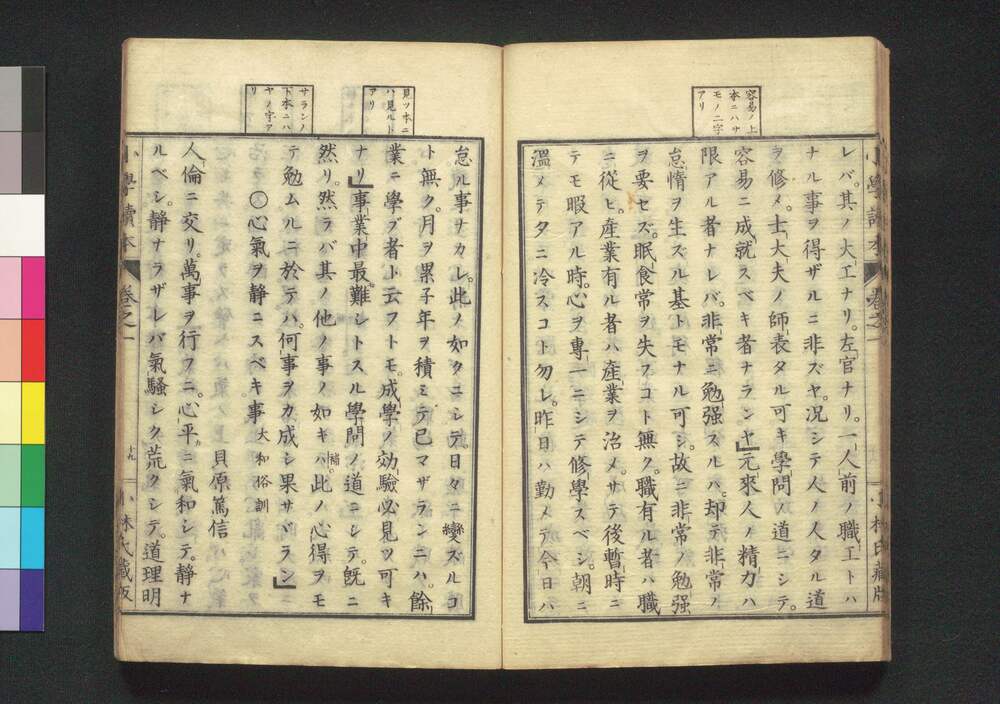 容易ノ上
本ニハサ
モノ二字
アリ
レバ。其ノ大工ナリ。左官ナリ。一人前ノ職工トハ
ナル事ヲ得ザルニ非ズヤ。况シテ人ノ人タル道
ヲ修メ。士大夫ノ師表タル可キ學問ノ道ニシテ。
容易ニ成就スベキ者ナランヤ』元來人ノ精力ハ
限アル者ナレバ。非常ニ勉强スルハ。却テ非常ノ
怠惰ヲ生ズル基トモナル可シ。故ニ非常ノ勉强
ヲ要セズ。眠食常ヲ失フコト無ク。職有ル者ハ職
ニ從ヒ。產業有ル者ハ產業ヲ治メ。サテ後暫時ニ
テモ暇アル時。心ヲ專一ニシテ修學スベシ。朝ニ
溫メテタニ冷スコト勿レ。昨日ハ勤メテ今日ハ
見ツ本ニ
ハ見ルト
アリ
サランノ
下本ニハ
ヤノ字ア
リ
怠ル事ナカレ。此ノ如タニシテ。日々ニ變ズルコ
ト無ク。月ヲ累子年ヲ積ミテ已マザランニハ。餘
業ニ學ブ者ト云フトモ。成學ノ効驗必見ツ可キ
ナリ』事業中最難シトスル學問ノ道ニシテ。旣ニ
然リ。然ラバ其ノ他ノ事ノ如キハ補。此ノ心得ヲモ
テ勉ムルニ於テハ。何事ヲカ成シ果サヾラン』
〇心氣ヲ靜ニスベキ事 大和俗訓
貝原篤信
人倫ニ交リ。萬事ヲ行フニ。心平ニ氣和シテ。靜ナ
ルベシ。靜ナラザレバ氣騷シク荒クシテ。道理明
小學讀本 卷之一 十九 小林氏藏版